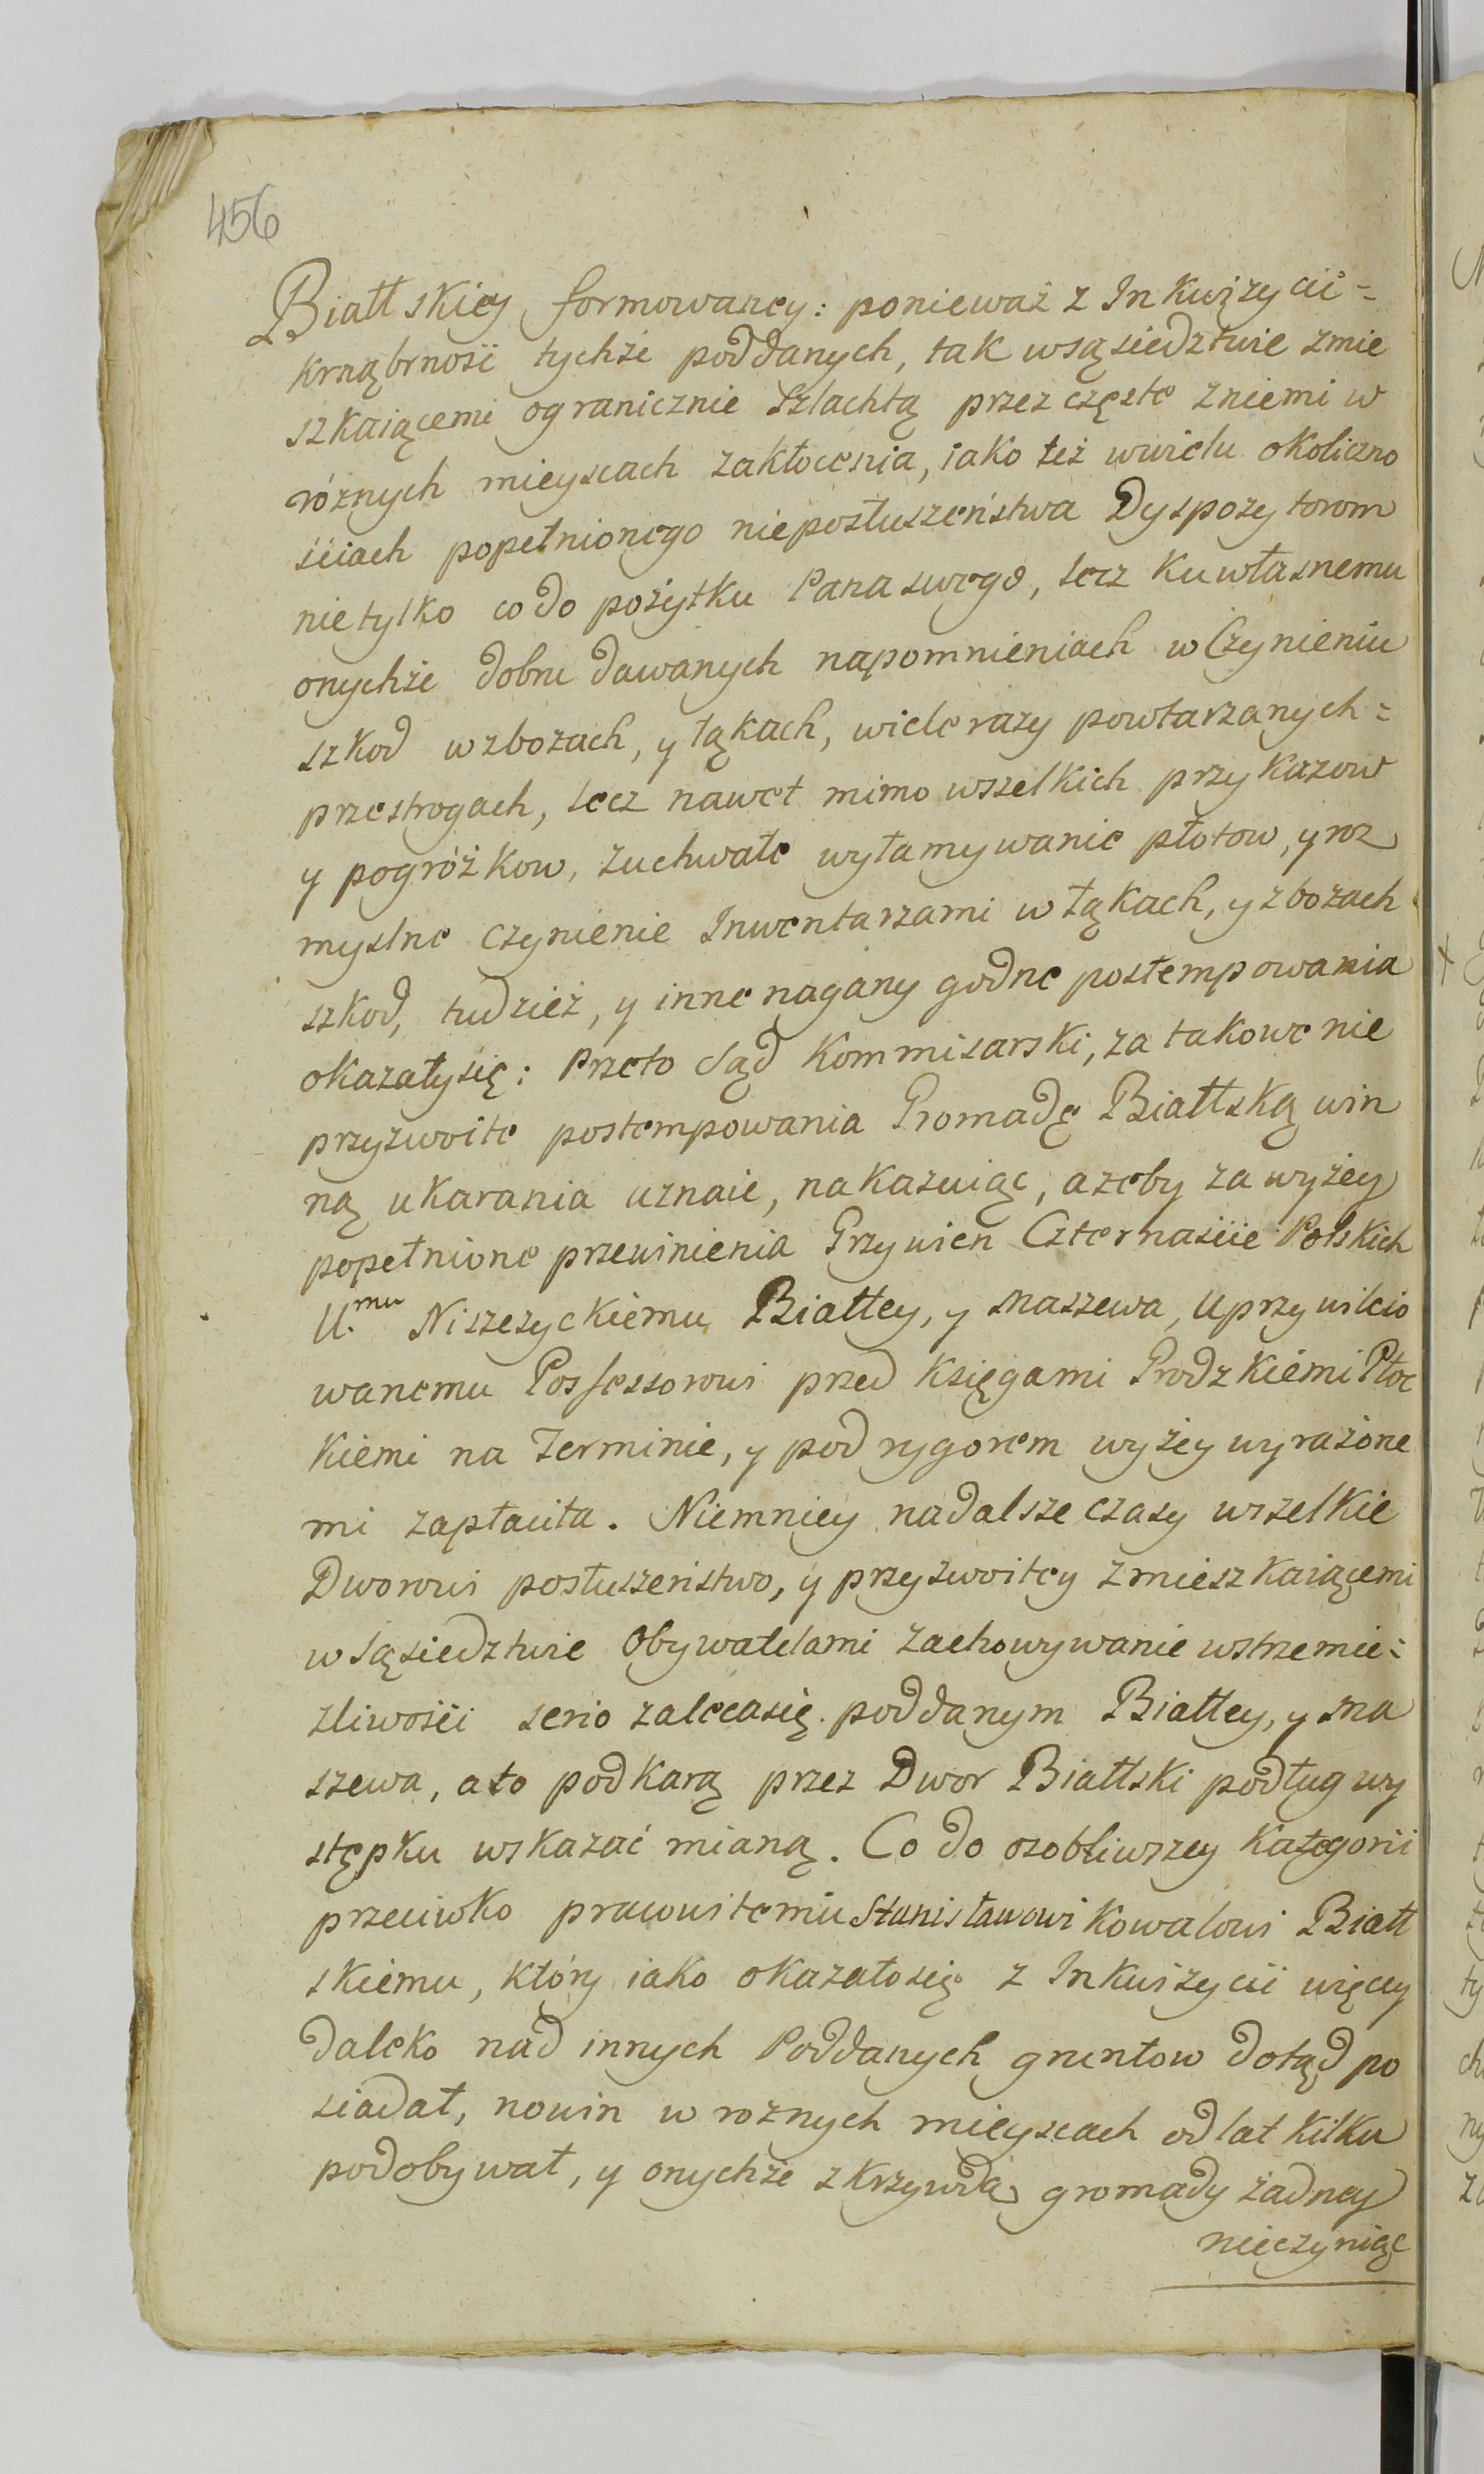 456
Białłskiey formowaney: ponieważ z Inkwizycii=
krnąbrność tychże poddanych, tak wsąsiedztwie zmie
szkaiącemi ogranicznie Szlachtą przez częste zniemi w
róznych mieyscach zakłocenia, iako też wwielu okoliczno
ściach popełnionego nieposłuszeństwa Dyspozytorom
nietylko codo pożytku Pana swego, lecz ku własnemu
onychże dobru dawanych napomnieniach w Czynieniu
szkod wzbozach, y łąkach, wiele razy powtarzanych=
przestrogach, lecz nawet mimo wszelkich przykazow
y pogróżkow, zuchwałe wyłamywanie płotow, y roz
myslne czynienie Inwentarzami w łąkach, y zbozach
szkod, tudzież, y inne nagany godne postempowania
okazałysię: Przeto Sąd Kommisarski, za takowe nie
przyzwoite postempowania Gromadę Białłską win
ną ukarania uznaie, nakazuiąc, azeby za wyżey
popełnione przewinienia Grzywien Czternaście Polskich
U.mu Niszczyckiemu Białłey, y Maszewa, Uprzywileio
wanemu Possessorowi przed Księgami Grodzkiemi Płoc
kiemi na Terminie, y pod rygorem wyżey wyrażone
mi zapłaciła. Niemniey nadalsze czasy wszelkie
Dworowi posłuszeństwo, y przyzwoitey zmieszkaiącemi
w sąsiedztwie Obywatelami zachowywanie wstrzemie=
zliwości serio zalecasię poddanym Białłey, y Ma
szewa, ato pod karą przez Dwor Białłski podług wy
stępku wskazać mianą. Co do osobliwszey Kategorii
przeciwko prawowitemu Stanisławowi Kowalowi Białł
skiemu, który iako okazałosię z Inkwizycii więcey
daleko nad innych Poddanych gruntow dotąd po
siadał, nowin w roznych mieyscach odlat kilku
podobywał, y onychże z krzywdą gromady żadney
nieczyniąc